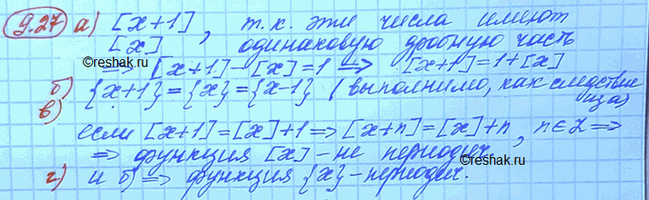 9.27 а) [x+1], т.к. эти числа имеют
[x] одинаковую дробную часть
⇒ [x+1]-[x]=1 ⇒ [x+1]=1+[x]
б) {x+1}={x}={x-1} (выполнимо, как следствие
в) из а)
если [x+1]=[x]+1 ⇒ [x+n]=[x]+n, n∈Z ⇒
⇒ функция [x] - не периодич.
г) и б) ⇒ функция {x} - периодич.
©reshak.ru
©reshak.ru